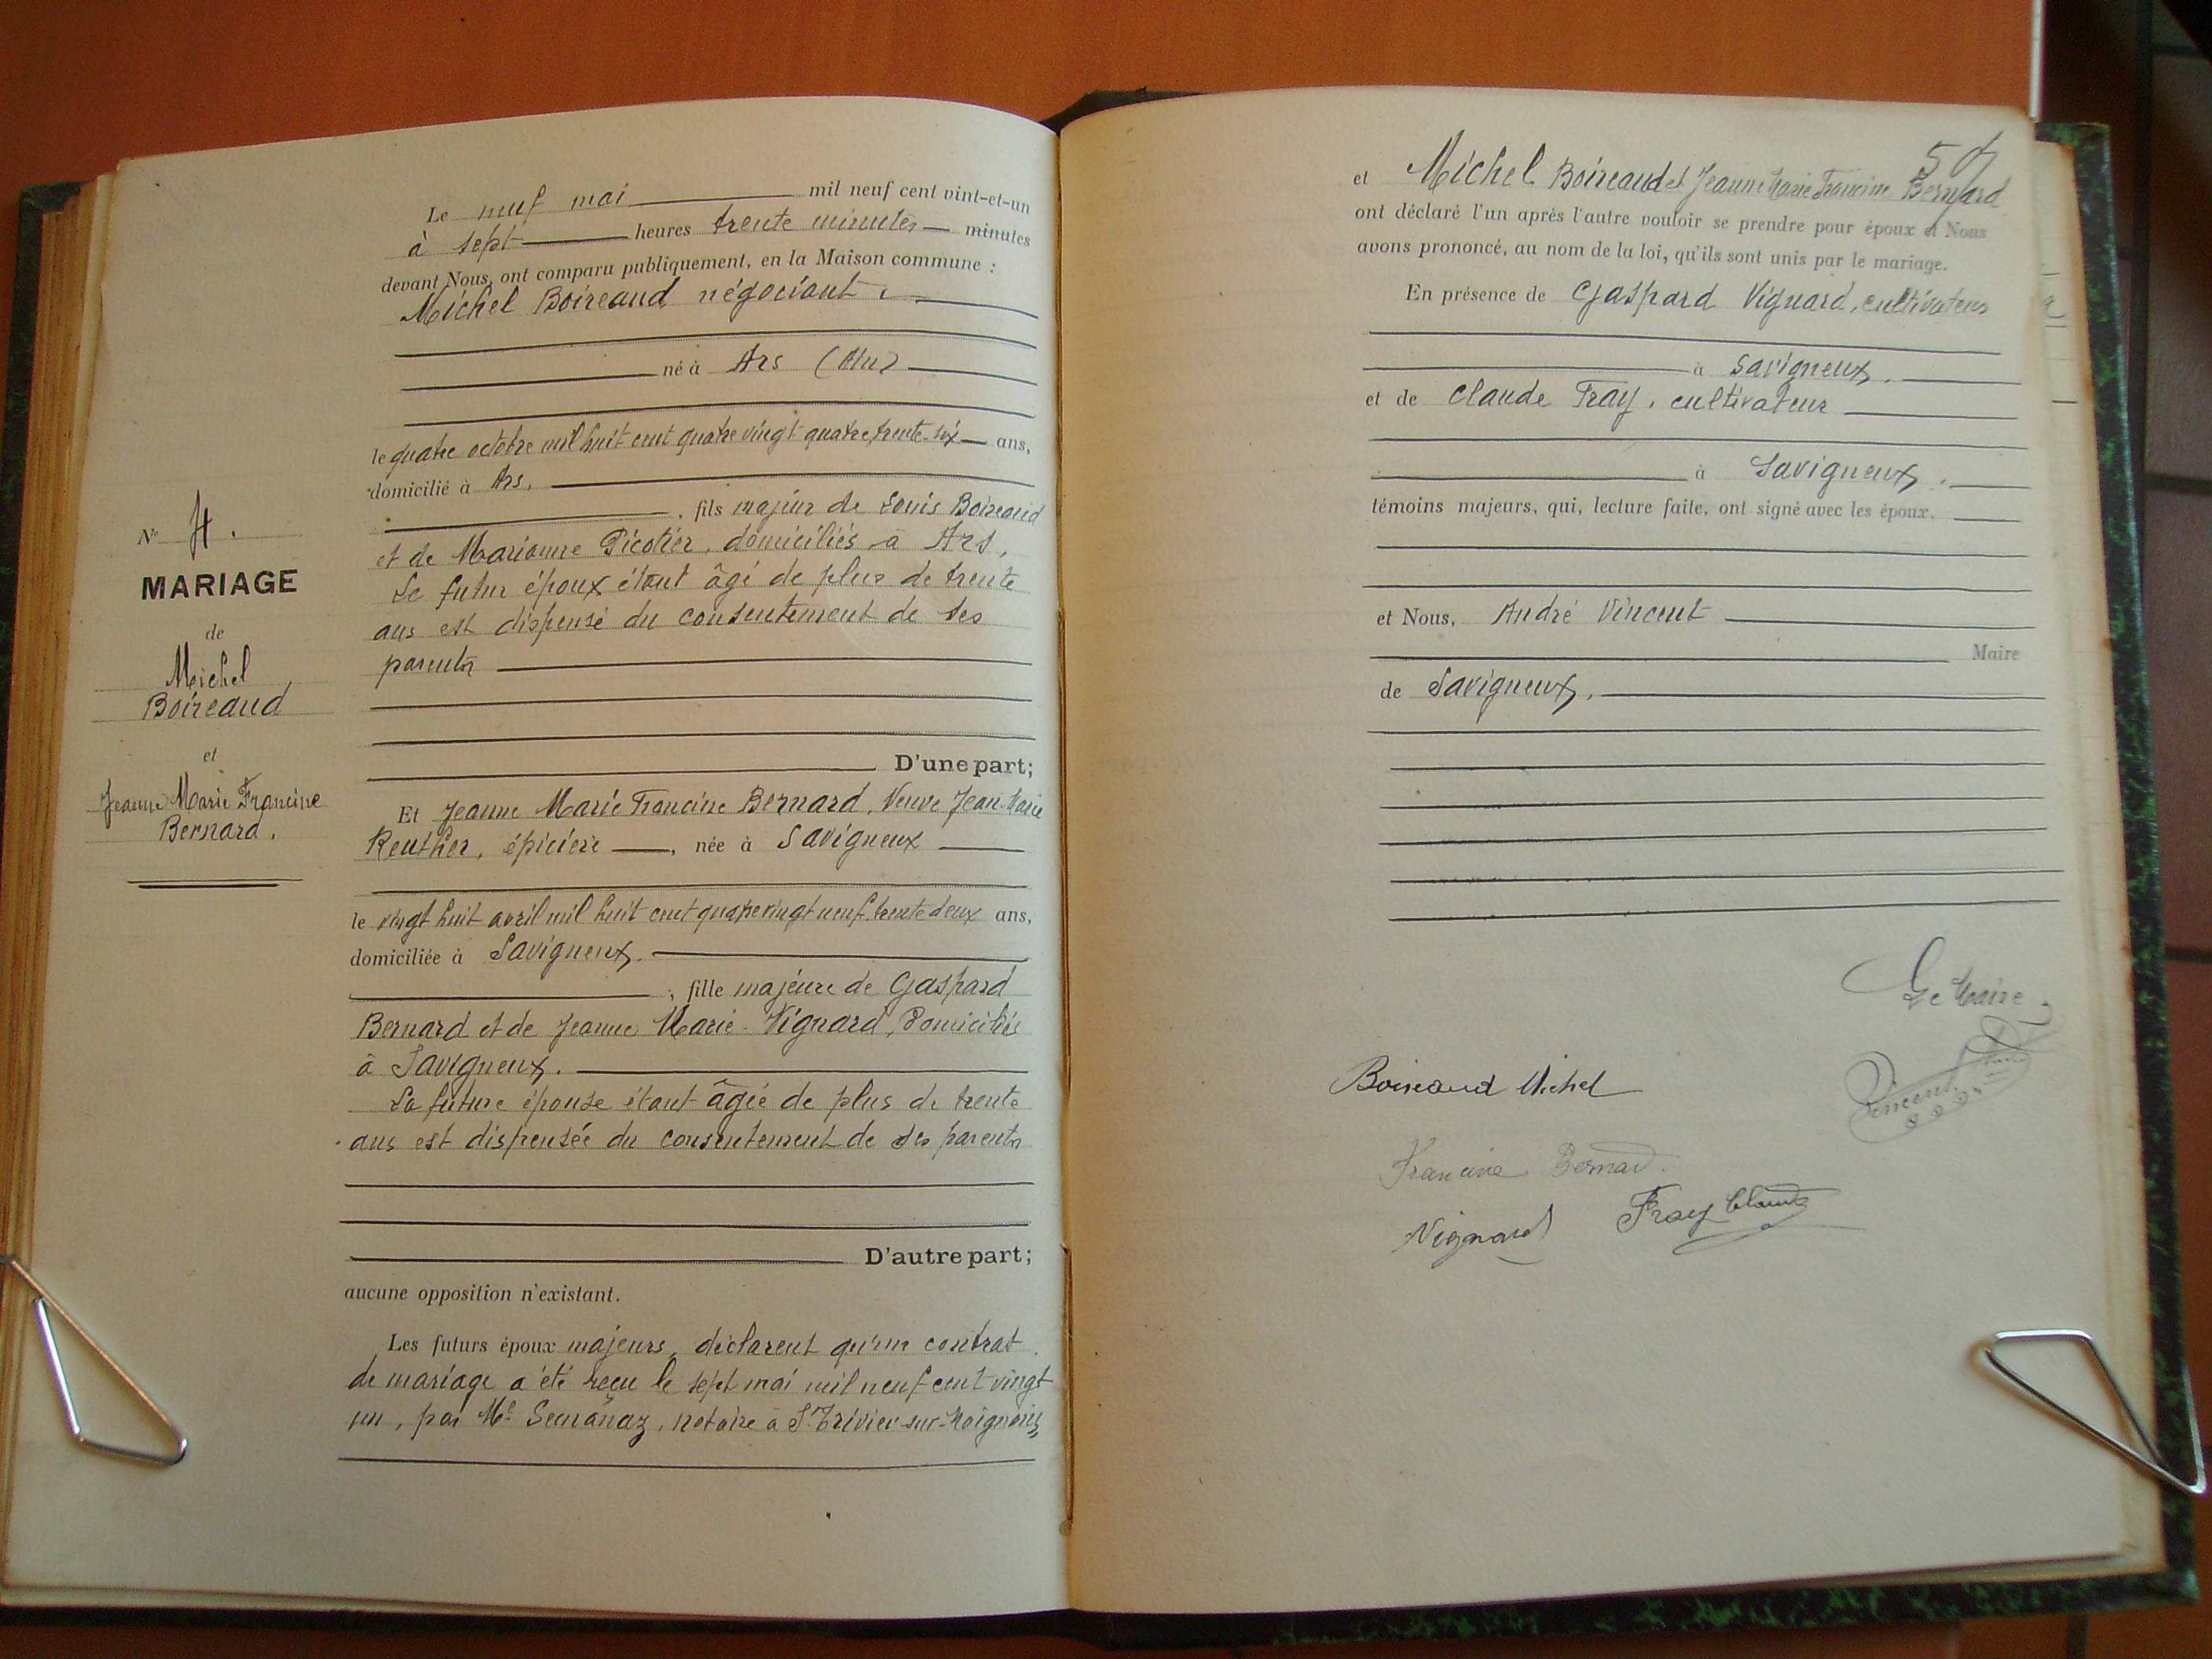 Le neuf mai mil neuf cent vint-et-un
à sept heures trente minutes minutes
devant Nous, ont comparu publiquement, en la Maison commune :
Michel Boireaud négociant.
né à Ars (Ain)
le quatre octobre mil huit cent quatre vingt quatre, trente-six ans,
domicilié à Ars.
, fils majeur de Louis Boireaud
et de Marianne Picotier, domiciliés à Ars,
Le futur époux étant âgé de plus de trente
ans est dispensé du consentement de ses
parents
D'une part;
Nº 4.
MARIAGE
de
Michel
Boireaud
et
Jeanne Marie Francine
Bernard.
Et Jeanne Marie Francine Bernard, Veuve Jean-Marie
Reuther, épicière, née à Savigneux
le vingt huit avril mil huit cent quatre vingt neuf, trente deux ans,
domiciliée à Savigneux.
, fille majeure de Gaspard
Bernard et de Jeanne Marie Vignard, domiciliés
à Savigneux.
La future épouse étant âgée de plus de trente
ans est dispensée du consentement de ses parents
D'autre part;
aucune opposition n'existant.
Les futurs époux majeurs, déclarent qu'un contrat
de mariage a été reçu le sept mai mil neuf cent vingt
un, par Me Semanaz, notaire à St Trivier-sur-Moignans
et Michel Boireaud et Jeanne Marie Francine Bernard
ont déclaré l'un après l'autre vouloir se prendre pour époux et Nous
avons prononcé, au nom de la loi, qu'ils sont unis par le mariage.
En présence de Gaspard Vignard, cultivateur
à Savigneux.
et de Claude Fray, cultivateur
à Savigneux.
témoins majeurs, qui, lecture faite, ont signé avec les époux.
et Nous, André Vincent
Maire
de Savigneux.
Le Maire
Boireaud Michel
Vincent
Francine Bernard.
Vignard Fray Claude